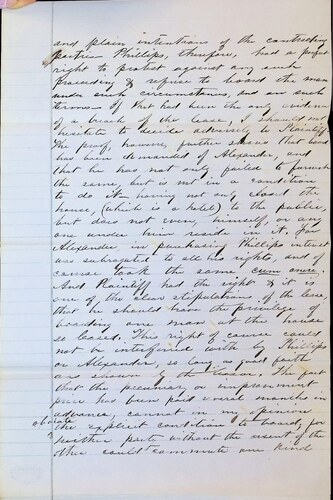 and plain intentions of the contracting
parties. Phillips, therefore, had a perfect
right to protest against any such
proceeding & refuse to board the man
under such circumstances, and on such
terms. If that had been the only evidence
of a breach of the lease, I should not
hesitate to decide adversely to Plaintiff.
The proof, however, further shows that board
has been demanded of Alexander, and
that he has not only failed to furnish
the same, but is not in a condition
to do it — having not only closed the
house, (which is a hotel) to the public
but does not even, himself, or any
one under him reside in it. For
Alexander in purchasing Phillips interest
was subrogated to all his rights, and of
course took the same, cum onere.
And Plaintiff had the right & it is
one of the clear stipulations of the lease
that he should have the privilege of
boarding one man at the house
so leased. This right of course could
not be interfered with by Phillips
or Alexander, so long as good faith
was shown by the lessor. The fact
that the pecuniary or
price has been paid several months in
advance, cannot in my opinion
obviate
the explicit condition to board, for
neither party without the assent of the
other could commute one kind